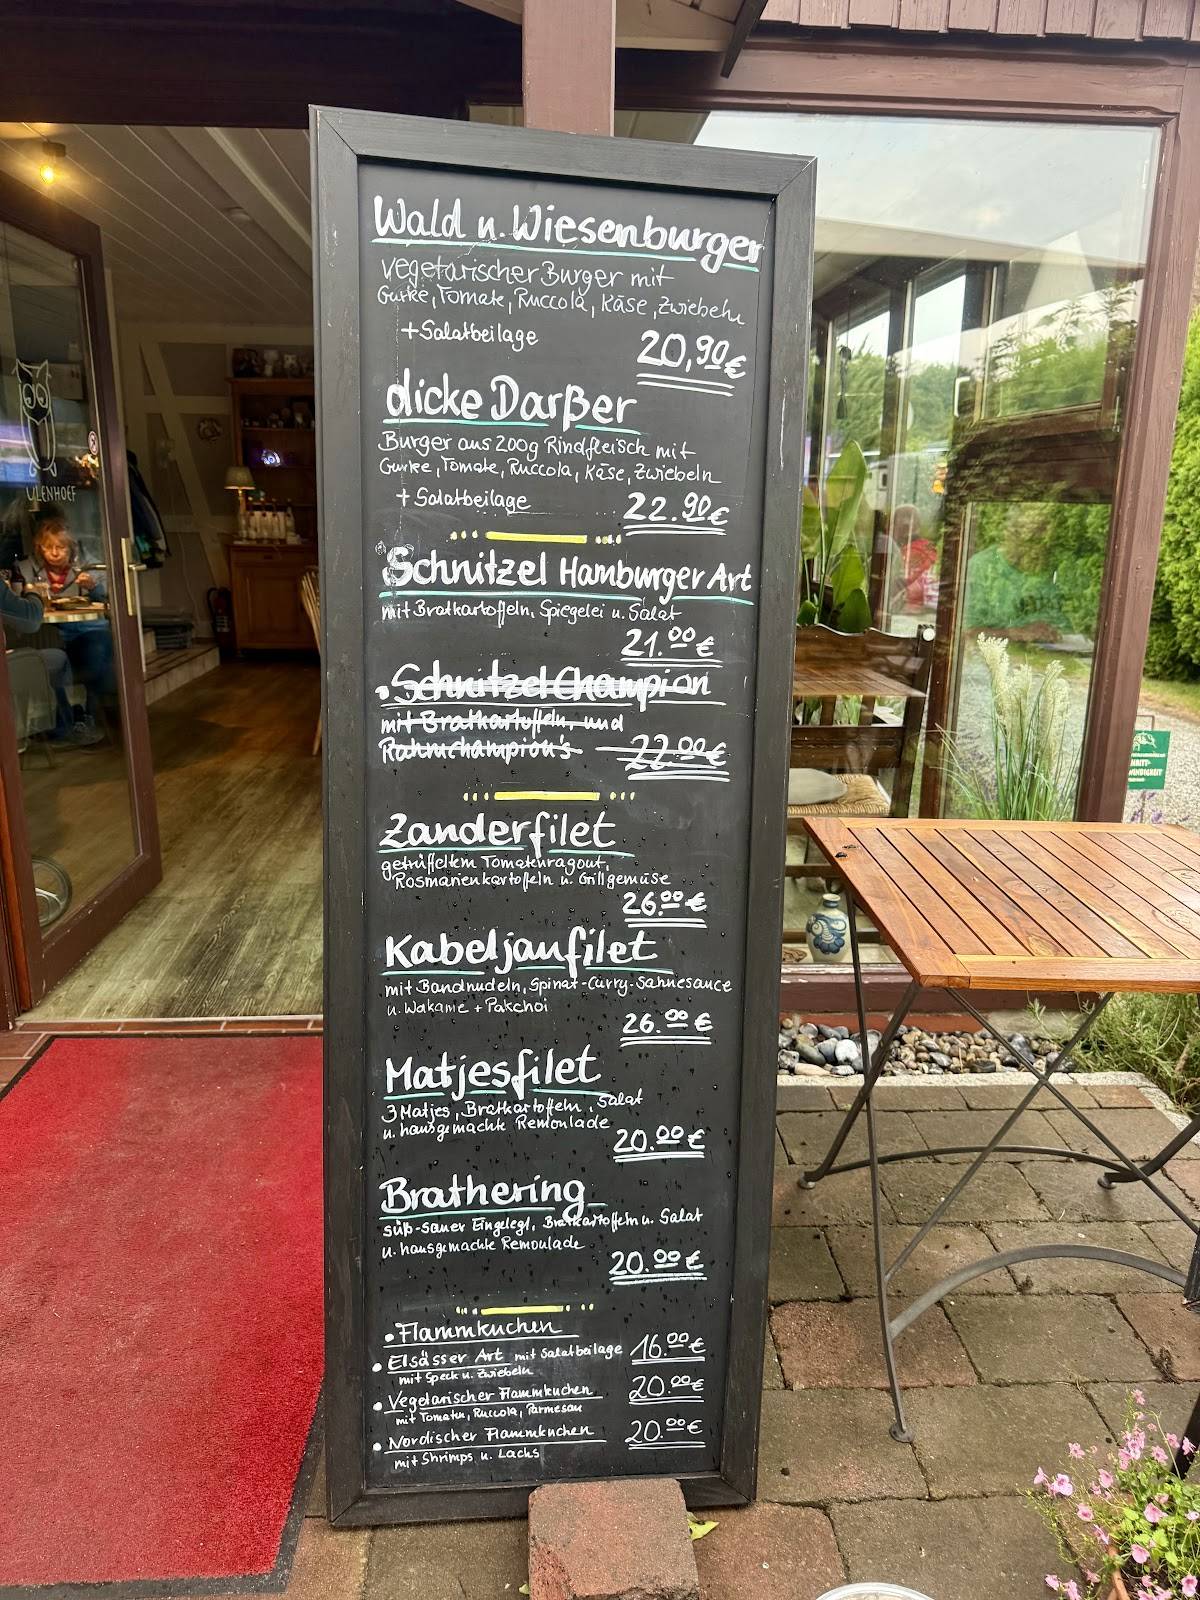 Wald u. Wiesenburger
vegetarischer Burger mit
Gurke, Tomate, Ruccola, Käse, Zwiebeln
+ Salatbeilage
20,90 €
dicke Darßer
Burger aus 200g Rindfleisch mit
Gurke, Tomate, Ruccola, Käse, Zwiebeln
+ Salatbeilage
22.90 €
Schnitzel Hamburger Art
mit Bratkartoffeln, Spiegelei u. Salat
21.00 €
• Schnitzel Champion
mit Bratkartoffeln und
Rahmchampion's 22.00 €
Zanderfilet
getrüffeltem Tomatenragout,
Rosmarienkartoffeln u. Grillgemüse
26.00 €
Kabeljaufilet
mit Bandnudeln, Spinat-Curry-Sahnesauce
u. Wakame + Pakchoi
26.00 €
Matjesfilet
3 Matjes, Bratkartoffeln, Salat
u. hausgemachte Remoulade
20.00 €
Brathering
süß-sauer Eingelegt, Bratkartoffeln u. Salat
u. hausgemachte Remoulade
20.00 €
• Flammkuchen
• Elsässer Art mit Salatbeilage 16.00 €
mit Speck u. Zwiebeln
• Vegetarischer Flammkuchen 20.00 €
mit Tomaten, Ruccola, Parmesan
• Nordischer Flammkuchen 20.00 €
mit Shrimps u. Lachs
ULENHOEF